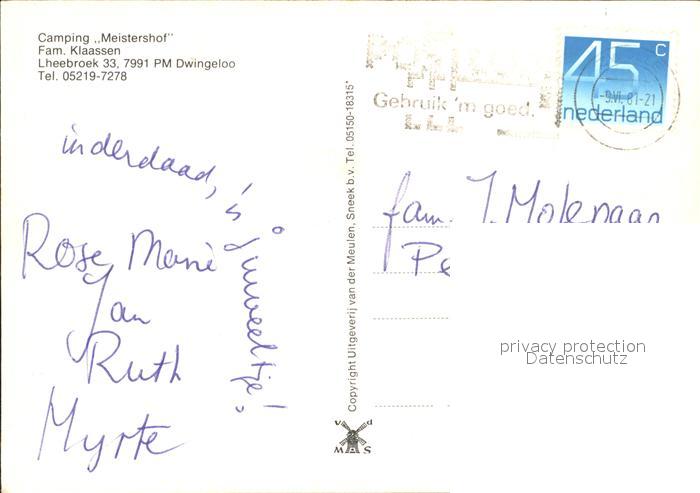 Camping ,,Meistershof"
Fam. Klaassen
Lheebroek 33, 7991 PM Dwingeloo
Tel. 05219-7278
inderdaad, 'n juweeltje!
Rose Marie
Jan
Ruth
Myrte
Copyright Uitgeverij van der Meulen, Sneek b.v. Tel. 05150-18315*
v d
M S
Gebruik 'm goed.
45 c
nederland
-9.VI.81-21
fam. J. Molenaar
Pe
privacy protection
Datenschutz